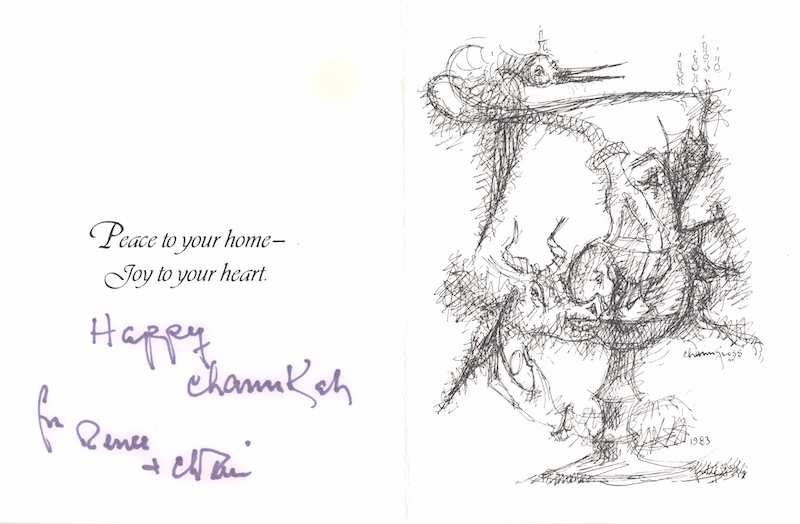 Peace to your home–
Joy to your heart.
Happy
Chanukah
for Renee
+
Chaim Gross
1983